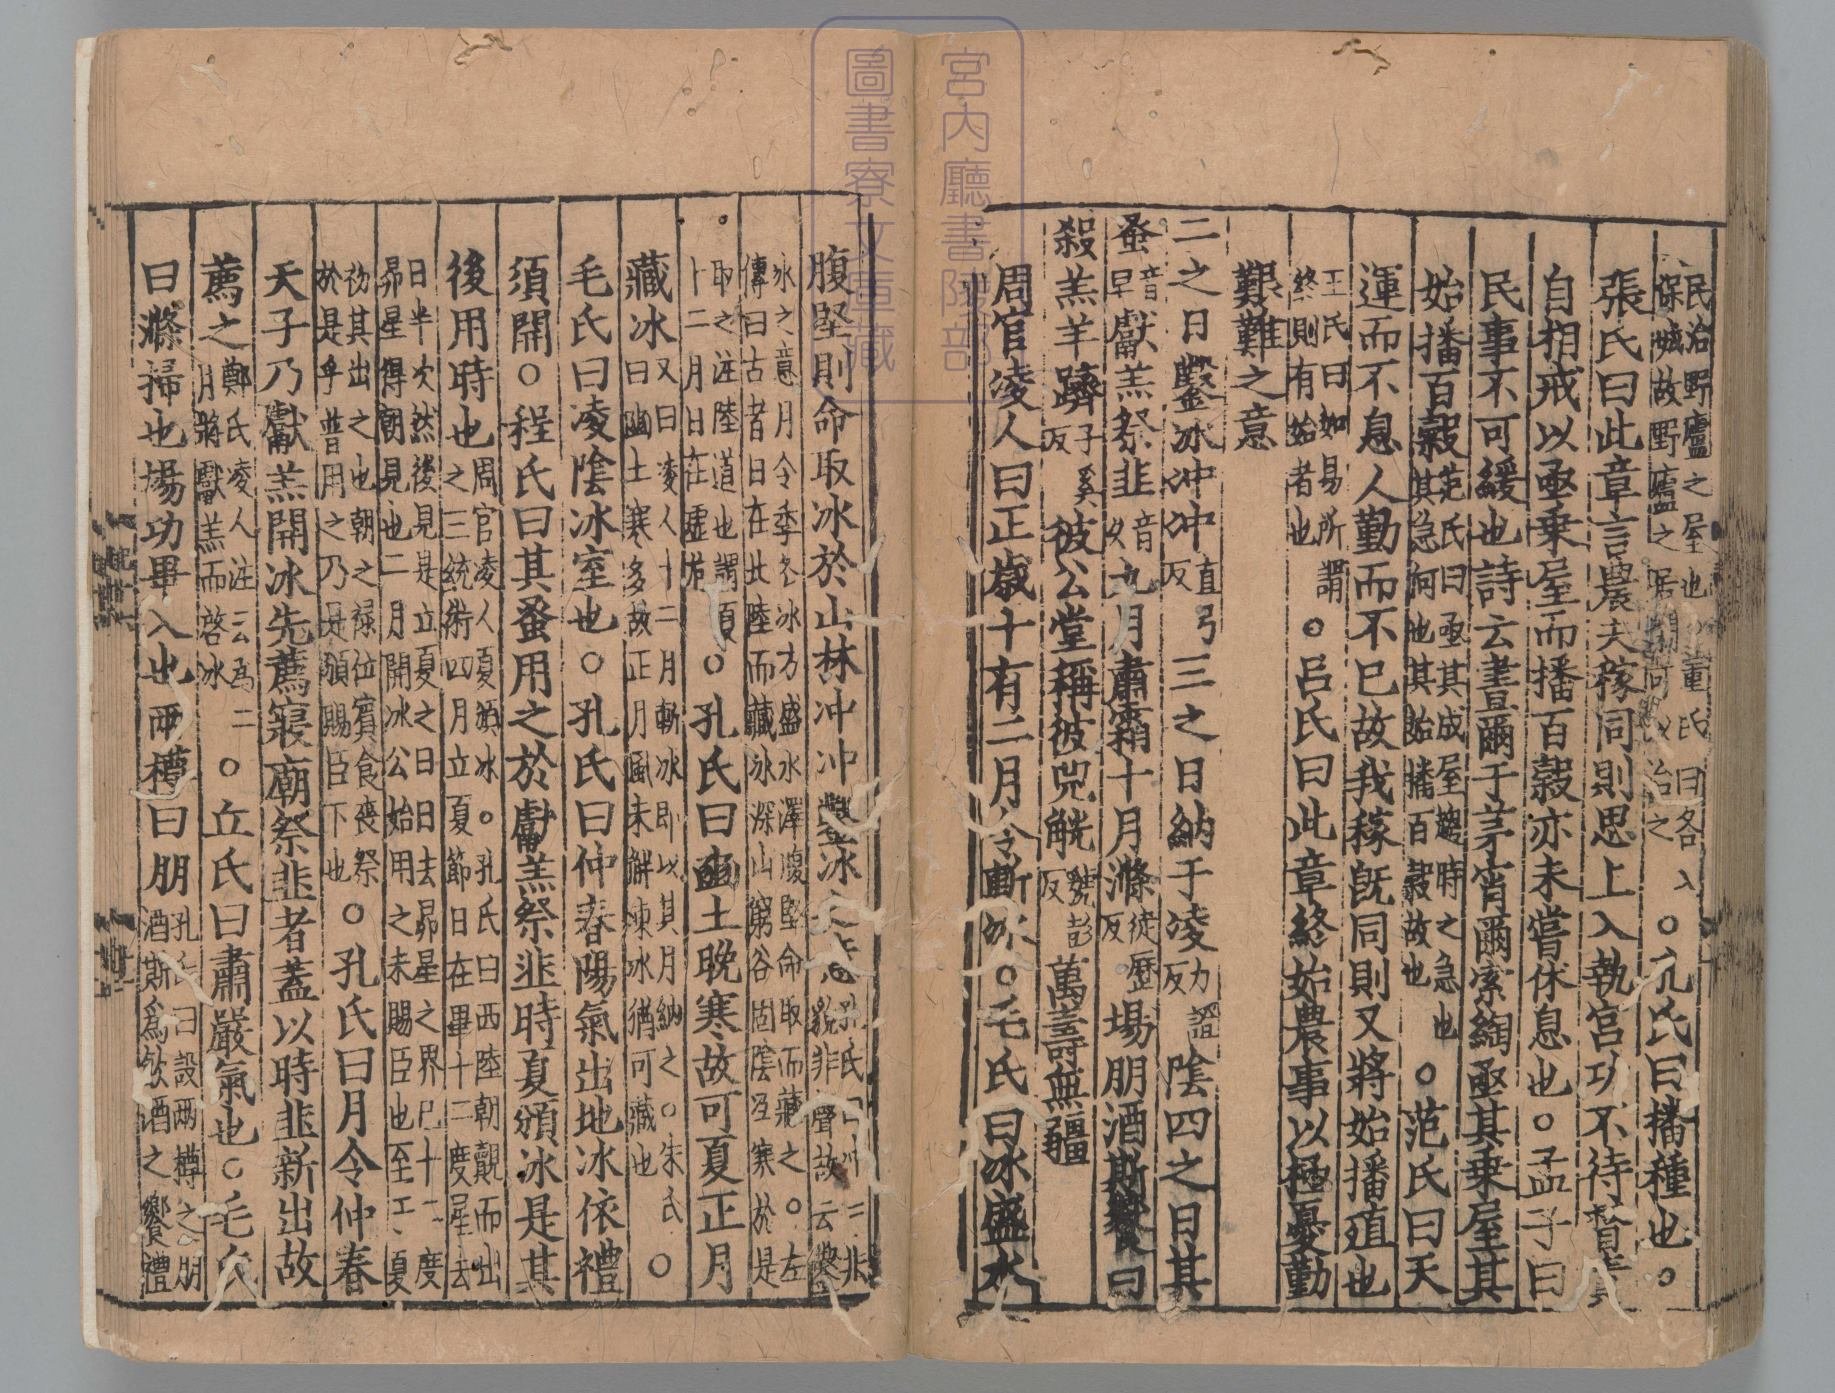 民治野廬之屋也 董氏曰各入
保城故野廬之居 治之
○孔氏曰播種也○
張氏曰此章言農夫稼同則思上入執宮功不待督責
自相戒以亟乗屋而播百穀亦未嘗休息也○孟子曰
民事不可緩也詩云晝爾于茅宵爾索綯亟其乗屋其
始播百穀
范氏曰亟其成屋趨時之急也
其急何也其始播百穀故也
○范氏曰天
運而不息人勤而不巳故我稼既同則又將始播殖也
王氏曰如易所謂
終則有始者也
○呂氏曰此章終始農事以極憂勤
艱難之意
二之日鑿冰冲冲
直弓
反
三之日納于凌
力證
反
陰四之日其
蚤
音
早
獻羔祭韭
音
乆
九月肅霜十月滌
徒歷
反
場朋酒斯饗曰
殺羔羊躋
子奚
反
彼公堂稱彼兕觥
虢彭
反
萬壽無疆
周官凌人曰正歳十有二月令斬冰○毛氏曰冰盛水
腹堅則命取冰於山林冲冲鑿冰之意
孔氏曰冲冲非
貌非聲故云鑿
冰之意月令季冬冰方盛水澤腹堅命取而藏之○左
傳曰古者日在北陸而藏冰深山窮谷固陰沍寒於是
取之注陸道也謂夏
十二月日在虚危
○孔氏曰豳土晩寒故可夏正月
藏冰
又曰凌人十二月斬冰即以其月納之○朱氏
曰豳土寒多故正月風未解凍冰猶可藏也
○
毛氏曰凌陰冰室也○孔氏曰仲春陽氣出地冰依禮
須開○程氏曰其蚤用之於獻羔祭韭時夏頒冰是其
後用時也
周官凌人夏頒冰○孔氏曰西陸朝覿而出
之三統術四月立夏節日在畢十二度星去
日半次然後見是立夏之日日去昴星之界巳十二度
昴星得朝見也二月開冰公始用之未賜臣也至于夏
初其出之也朝之禄位賓食喪祭
於是乎普用之乃是頒賜臣下也
○孔氏曰月令仲春
天子乃獻羔開冰先薦寢廟祭韭者蓋以時韭新出故
薦之
鄭氏凌人注云為二
月將獻羔而啓冰
○丘氏曰肅嚴氣也○毛氏
曰滌掃也場功畢入也兩樽曰朋
孔氏曰設兩樽之朋
酒斯為飲酒之饗禮
宮内廳書陵部
圖書寮文庫藏